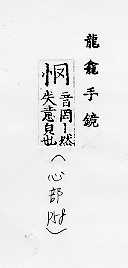 龍龕手鏡
音罔丨然
失意皃也
（心部 P58）